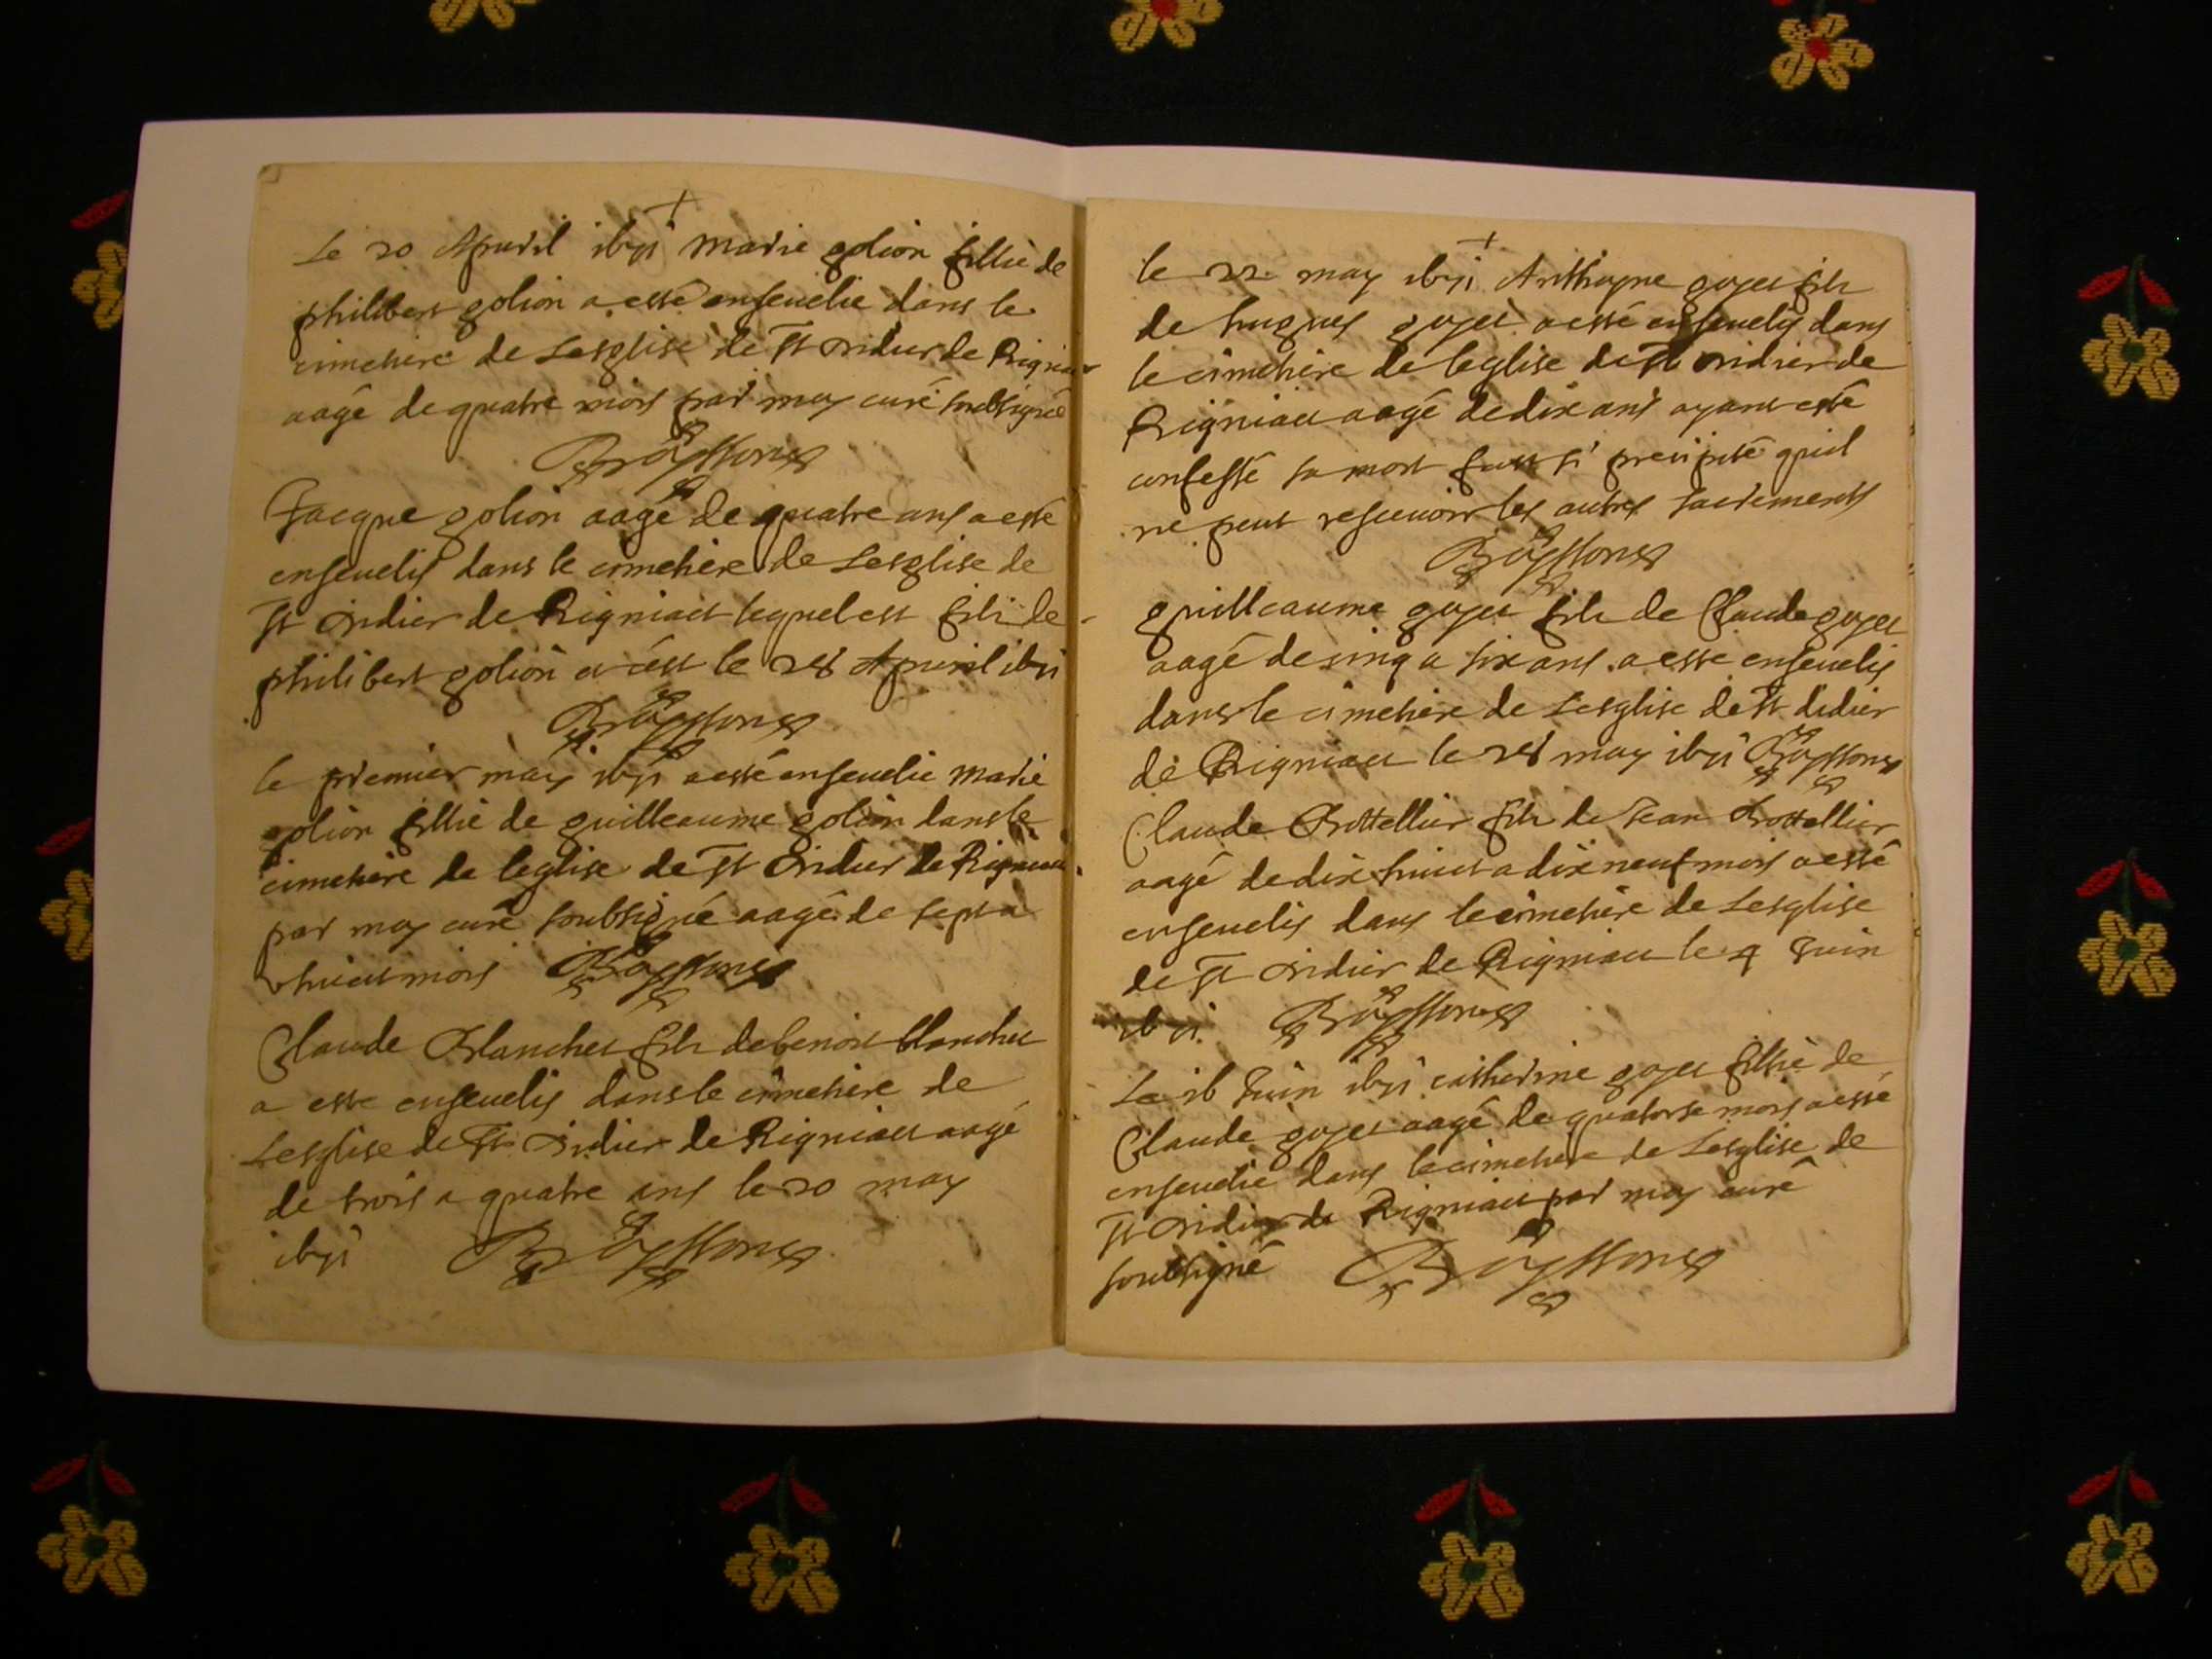 Le 20 Apvril 1671 Marie golion fillie de
philibert golion a esté ensevelie dans le
cimetiere de Lesglise de St Didier de Rigniau
aagé de quatre mois par moy curé soubsigné
Broyssons
Jacque golion aagé de quatre ans a esté
ensevelis dans le cimetiere de Lesglise de
St Didier de Rigniaut lequel est fils de
philibert golion et cest le 28 Apvril 1671
Broyssons
le premier may 1671 a esté ensevelie marie
golion fillie de guilleaume golion dans le
cimetiere de leglise de St Didier de Rigniau
par moy curé soubsigné aagé de sept a
huict mois Broyssons
Claude Blanchet fils de benoit blanchet
a este ensevelis dans le cimetiere de
Lesglise de St Didier de Rigniaut aagé
de trois a quatre ans le 20 may
1671 Broyssons
le 22 may 1671 Anthoyne goyet fils
de hugues goyet a esté ensevelis dans
le cimetiere de leglise de St Didier de
Rigniaut aagé de dix ans ayant esté
confessé sa mort fust si precipité quil
ne peut resceuoir les autres sacrements
Broyssons
guilleaume goyet fils de Claude goyet
aagé de cinq a six ans a esté ensevelis
dans le cimetiere de Lesglise de St didier
de Rigniaut le 28 may 1671 Broyssons
Claude Brottellier fils de Jean Brottellier
aagé de dix huict a dix neuf mois a esté
ensevelis dans le cimetiere de Lesglise
de St Didier de Rigniaut le 4 Juin
1671 Broyssons
Le 16 Juin 1671 catherine goyet fillie de
Claude goyet aagé de quatorse mois a esté
ensevelie dans le cimetiere de Lesglise de
St Didier de Rigniaut par moy curé
soubsigné Broyssons